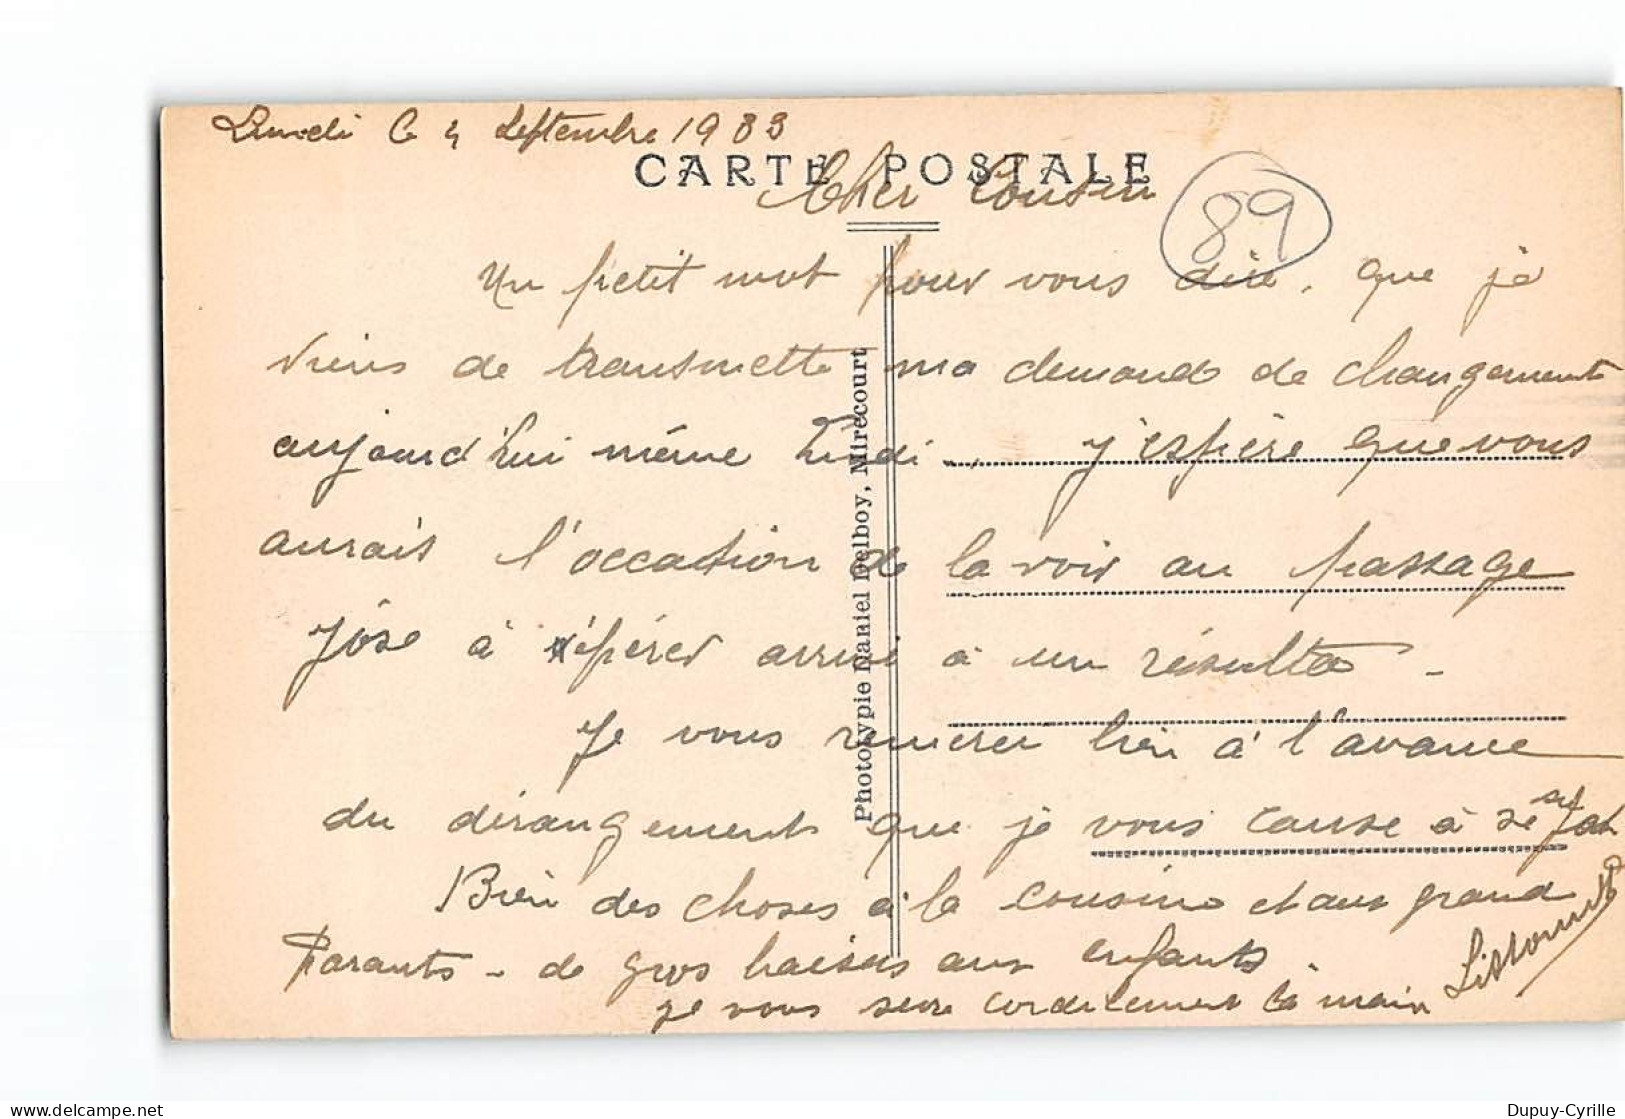 Lundi le 4 Septembre 1933
CARTE POSTALE
Cher Cousin
89
Un petit mot pour vous dire, que je
viens de transmette ma demande de changement
aujourd'hui même Lundi. j'espère que vous
aurais l'occasion de la voir au passage
j'ose à espérer arrivé à un résulta -
Je vous remercie bien à l'avance
du dérangement que je vous cause à se sujet
Bien des choses à la cousine et aux grand
Parants - de gros baisers aux enfants.
je vous serre cordilement la main
Photolypie Daniel Delboy, Mirecourt
Dupuy-Cyrille